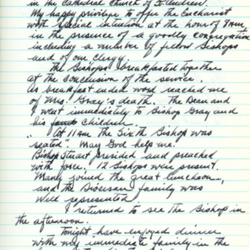 in the Cathedral Church of St. Andrew.
My happy privilege to offer the Eucharist
with special intention at the hour of 9am
in the presence of a goodly congregation
including a number of fellow Bishops
and of our clergy.
The Bishops breakfasted together
at the conclusion of the service.
As breakfast ended word reached me
of Mrs. Gray's death. The Dean and
I went immediately to Bishop Gray and
his children.
"At 11am The Sixth Bishop was
seated". May God help me.
Bishop Stuart presided and preached
with force. Bishops were present.
Many joined the great luncheon
and the Diocesan family was
well represented.
I returned to see the Bishop in
the afternoon.
Tonight have enjoyed dinner
with my immediate family in the